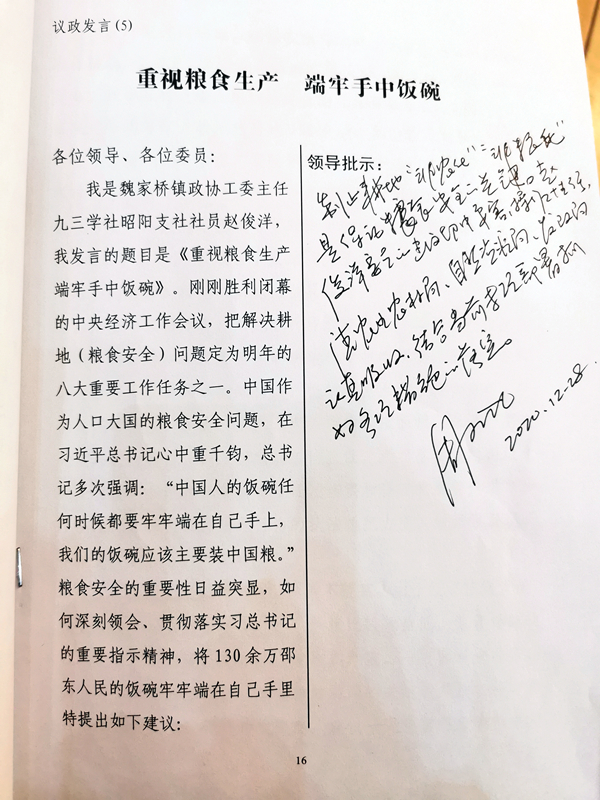 议政发言(5)
重视粮食生产 端牢手中饭碗
各位领导、各位委员：
我是魏家桥镇政协工委主任
九三学社昭阳支社社员赵俊洋，
我发言的题目是《重视粮食生产
端牢手中饭碗》。刚刚胜利闭幕
的中央经济工作会议，把解决耕
地（粮食安全）问题定为明年的
八大重要工作任务之一。中国作
为人口大国的粮食安全问题，在
习近平总书记心中重千钧，总书
记多次强调：“中国人的饭碗任
何时候都要牢牢端在自己手上，
我们的饭碗应该主要装中国粮。”
粮食安全的重要性日益突显，如
何深刻领会、贯彻落实习总书记
的重要指示精神，将130余万邵
东人民的饭碗牢牢端在自己手里
特提出如下建议：
领导批示：
制止耕地“非农化”“非粮化”
是保证粮食安全的关键。赵
俊洋委员的建议
请农业农村局、自然资源局
认真吸收，结合当前
2020.12.28
16